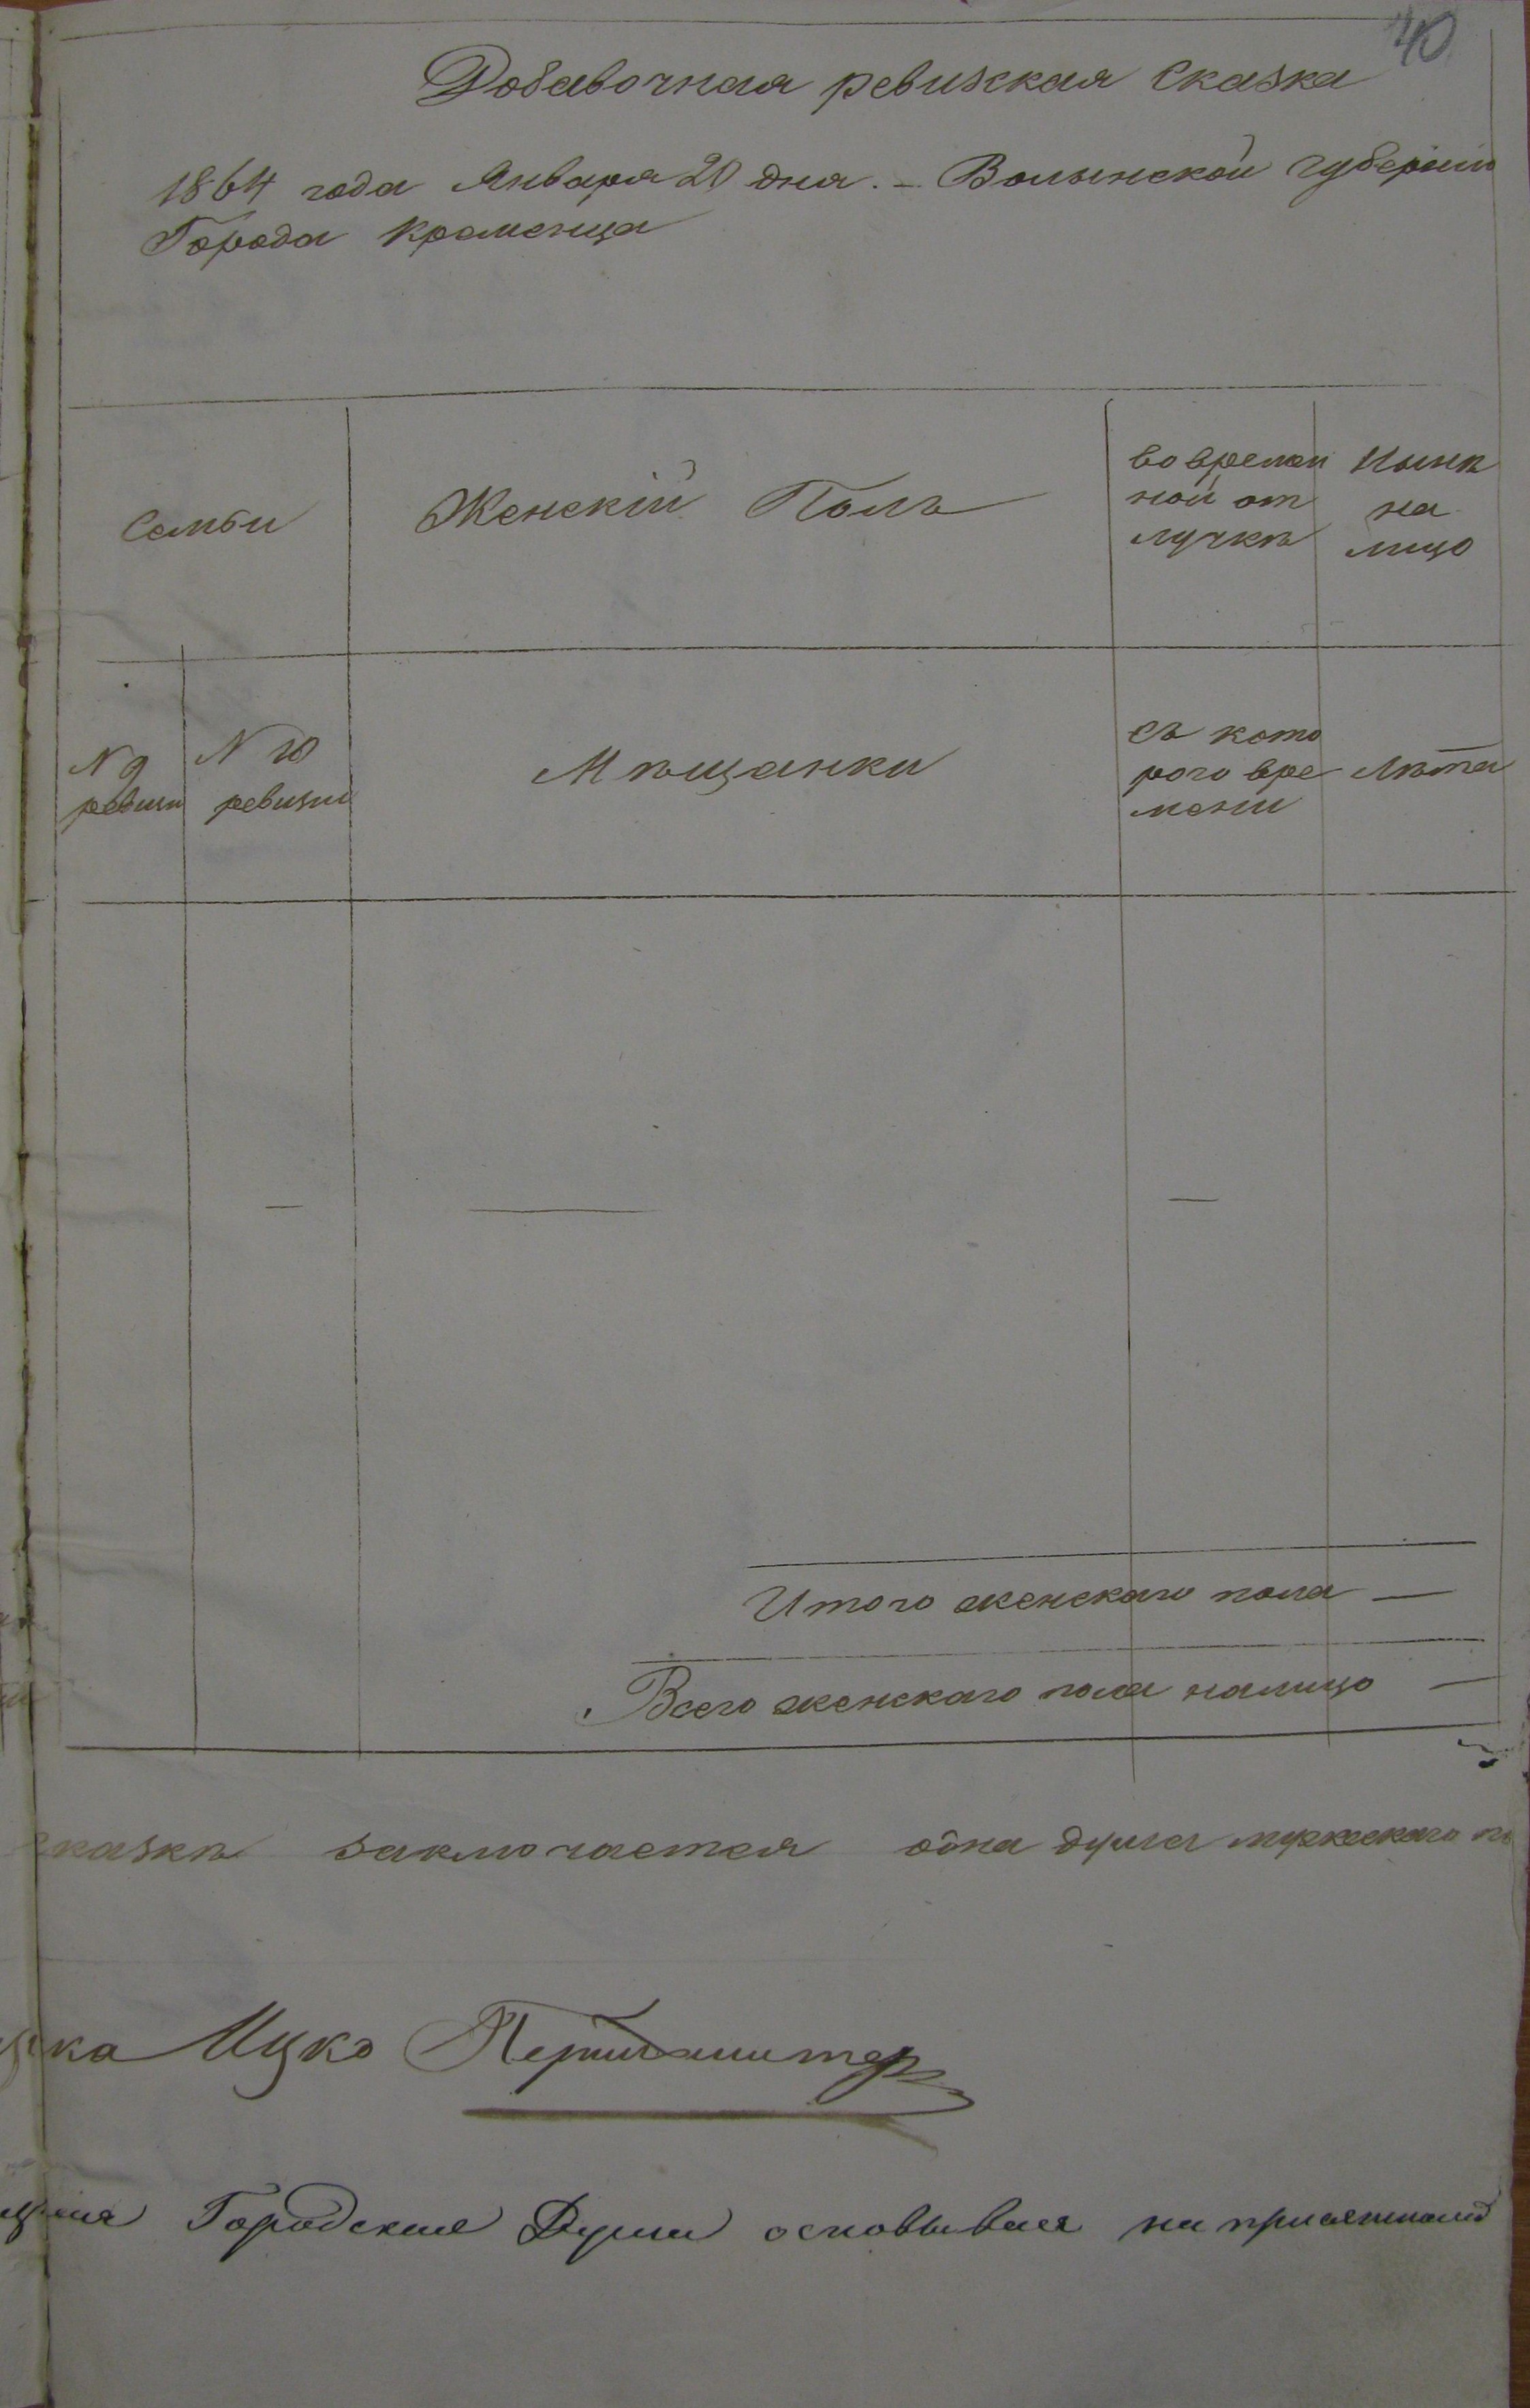 40
Добавочная ревизская Сказка
1864 года Января 20 дня. – Волынской губерніи
Города Кременца
Семьи
Женскій Полъ
во времен
ной от
лучкѣ
Нынѣ
на
лицо
N 9
ревизіи
N 10
ревизіи
Мѣщанки
съ кото
рого вре
мени
Лѣта
—
—
—
Итого женскаго пола —
Всего женскаго пола налицо —
сказкѣ заключается одна душа мужескаго по
ка Ицко
Городские Думы основываяся на